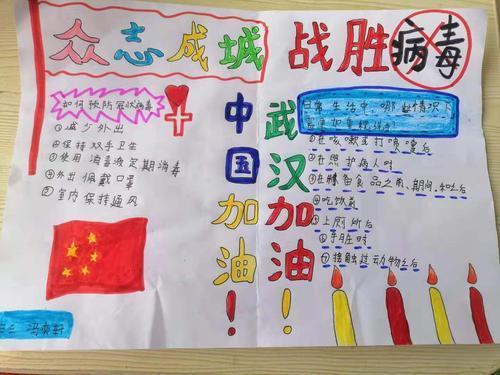 众志成城 战胜病毒
如何预防冠状病毒
①减少外出
②保持双手卫生
③使用消毒液定期消毒
④外出佩戴口罩
⑤室内保持通风
中国加油！
武汉加油！
日常生活中，哪些情况下
①在咳嗽或打喷嚏后
②在照护病人时
③在准备食品之前、期间和之后
④吃饭前
⑤上厕所后
⑥手脏时
⑦接触过动物之后